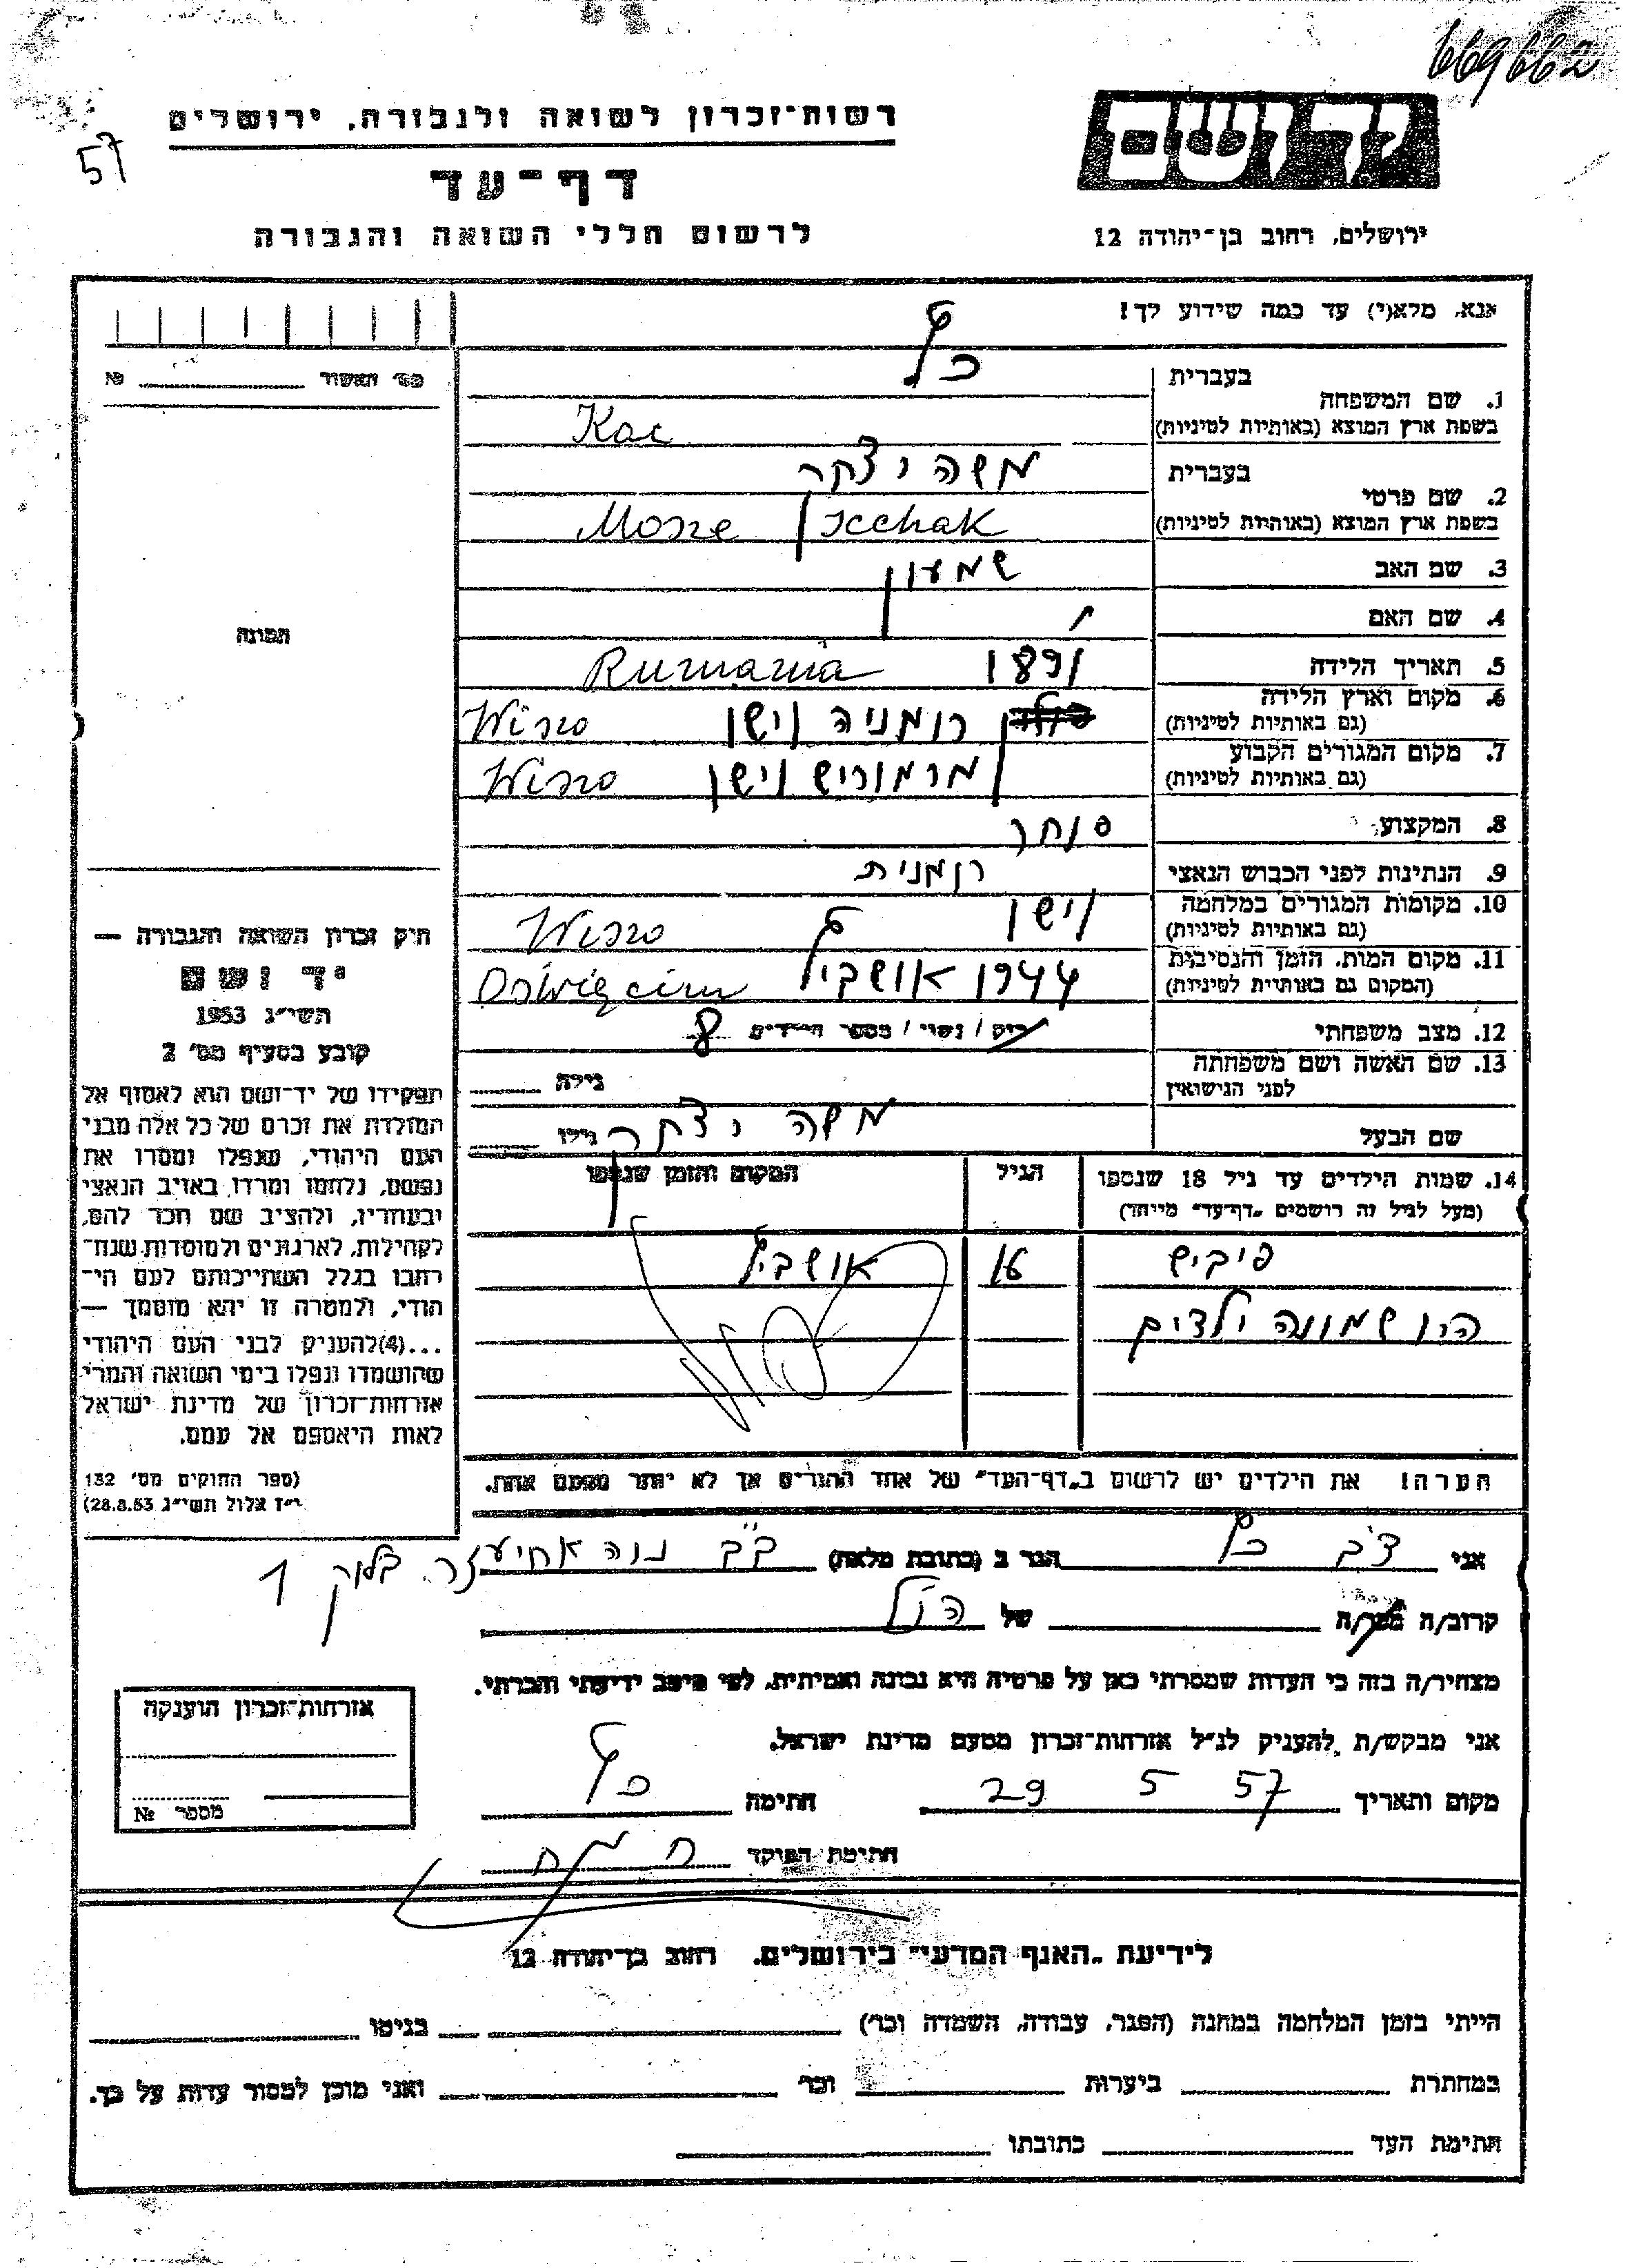 669662
57
רשות־זכרון לשואה ולגבורה, ירושלים
דף־עד
לרשום חללי השואה והגבורה
יד ושם
ירושלים, רחוב בן־יהודה 12
אנא, מלא(י) עד כמה שידוע לך!
1. שם המשפחה
בעברית כץ
בשפת ארץ המוצא (באותיות לטיניות) Kac
2. שם פרטי
בעברית משה יצחק
בשפת ארץ המוצא (באותיות לטיניות) Mosze Icchak
3. שם האב שמעון
4. שם האם
5. תאריך הלידה
Rumania
6. מקום וארץ הלידה
(גם באותיות לטיניות) רומניה וישו Wiszo
7. מקום המגורים הקבוע
(גם באותיות לטיניות) מרמוריש וישו Wiszo
8. המקצוע סוחר
9. הנתינות לפני הכבוש הנאצי רומנית
10. מקומות המגורים במלחמה
(גם באותיות לטיניות) וישו Wiszo
11. מקום המות, הזמן והנסיבות
(המקום גם באותיות לטיניות) 1944 אושביץ Oświęcim
12. מצב משפחתי רוק / נשוי / מספר הילדים 8
13. שם האשה ושם משפחתה
לפני הנישואין גילה
שם הבעל משה יצחק גילו
14. שמות הילדים עד גיל 18 שנספו
(מעל לגיל זה רושמים „דף־עד״ מיוחד)
הגיל
המקום והזמן שנספו
פיביש אושביץ
היו שמונה ילדים
הערה! את הילדים יש לרשום ב„דף־העד״ של אחד ההורים אך לא יותר מפעם אחת.
מס׳ האשור № 
תמונה
חוק זכרון השואה והגבורה —
יד ושם
תשי״ג 1953
קובע בסעיף מס׳ 2
תפקידו של יד־ושם הוא לאסוף אל
המולדת את זכרם של כל אלה מבני
העם היהודי, שנפלו ומסרו את
נפשם, נלחמו ומרדו באויב הנאצי
ובעוזריו, ולהציב שם וזכר להם,
לקהילות, לארגונים ולמוסדות שנח־
רבו בגלל השתייכותם לעם הי־
הודי, ולמטרה זו יהא מוסמך —
...(4)להעניק לבני העם היהודי
שהושמדו ונפלו בימי השואה והמרי
אזרחות־זכרון של מדינת ישראל
לאות היאספם אל עמם.
(ספר החוקים מס׳ 132
י״ז אלול תשי״ג 28.8.53)
אני צבי כץ הגר ב (כתובת מלאה) ב״ב נוה אחיעזר בלוק 1
קרוב/ה מכר/ה של הנ״ל
מצהיר/ה בזה כי העדות שמסרתי כאן על פרטיה היא נכונה ואמיתית, לפי מיטב ידיעתי והכרתי.
אני מבקש/ת להעניק לנ״ל אזרחות־זכרון מטעם מדינת ישראל.
מקום ותאריך 29 5 57 חתימה כץ
חתימת הפוקד
אזרחות־זכרון הוענקה
מספר №
לידיעת „האגף המדעי״ בירושלים. רחוב בן־יהודה 12
הייתי בזמן המלחמה במחנה (הסגר, עבודה, השמדה וכו׳) בגיטו
במחתרת ביערות וכו׳ ואני מוכן למסור עדות על כך.
חתימת העד כתובתו